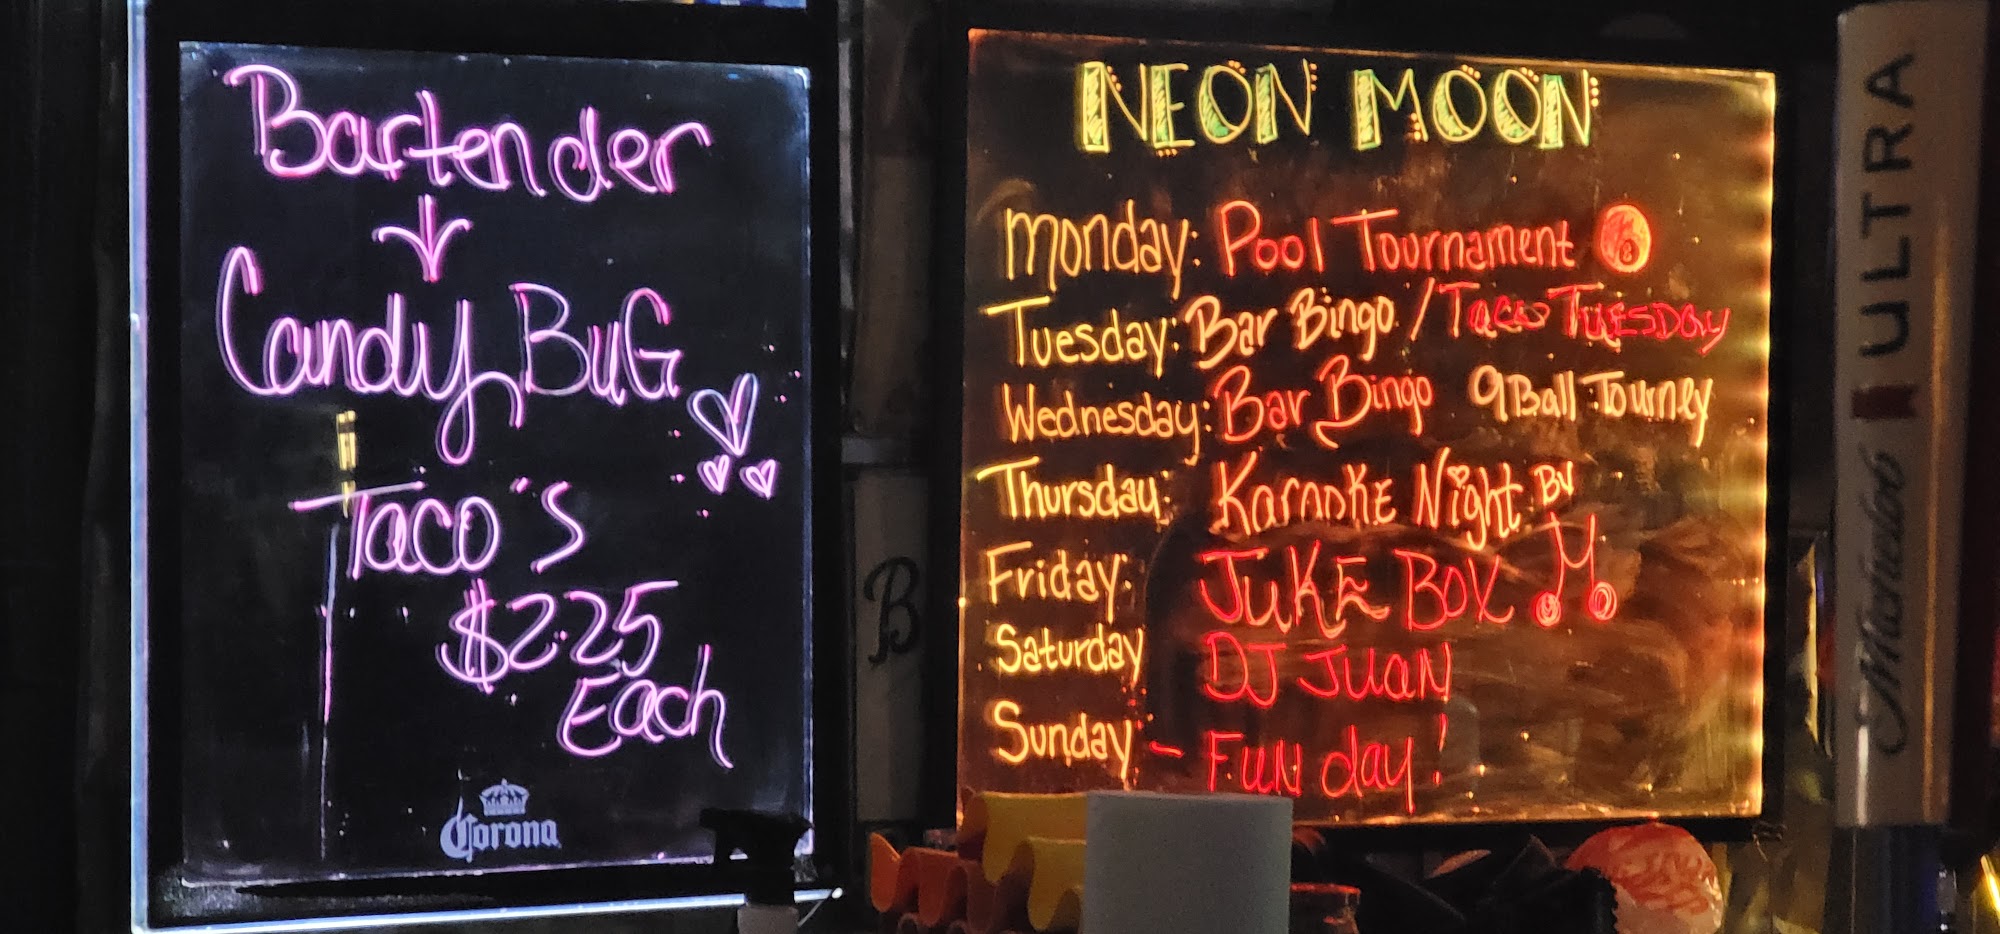 Bartender
Candy BuG
Taco's
$2.25
Each
Corona
NEON MOON
Monday: Pool Tournament 8
Tuesday: Bar Bingo / Taco TuesDay
Wednesday: Bar Bingo 9 Ball Tourney
Thursday: Karaoke Night By
Friday: JuKE BOX
Saturday DJ JUAN
Sunday - FUN day!
B
Michelob ULTRA